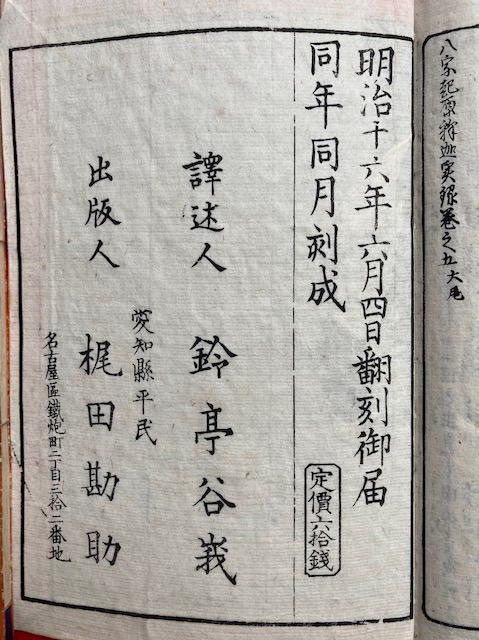 八宗起原釋迦实録巻之五大尾
明治十六年六月四日翻刻御届
同年同月刻成
定價六拾錢
譯述人 鈴亭谷峩
愛知縣平民
出版人 梶田勘助
名古屋區鐵炮町二丁目三拾二番地